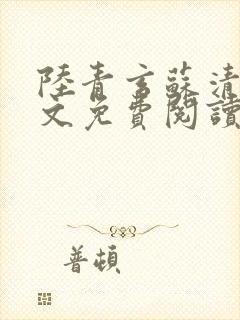 陸青言蘇清
文免費閱讀
普頓